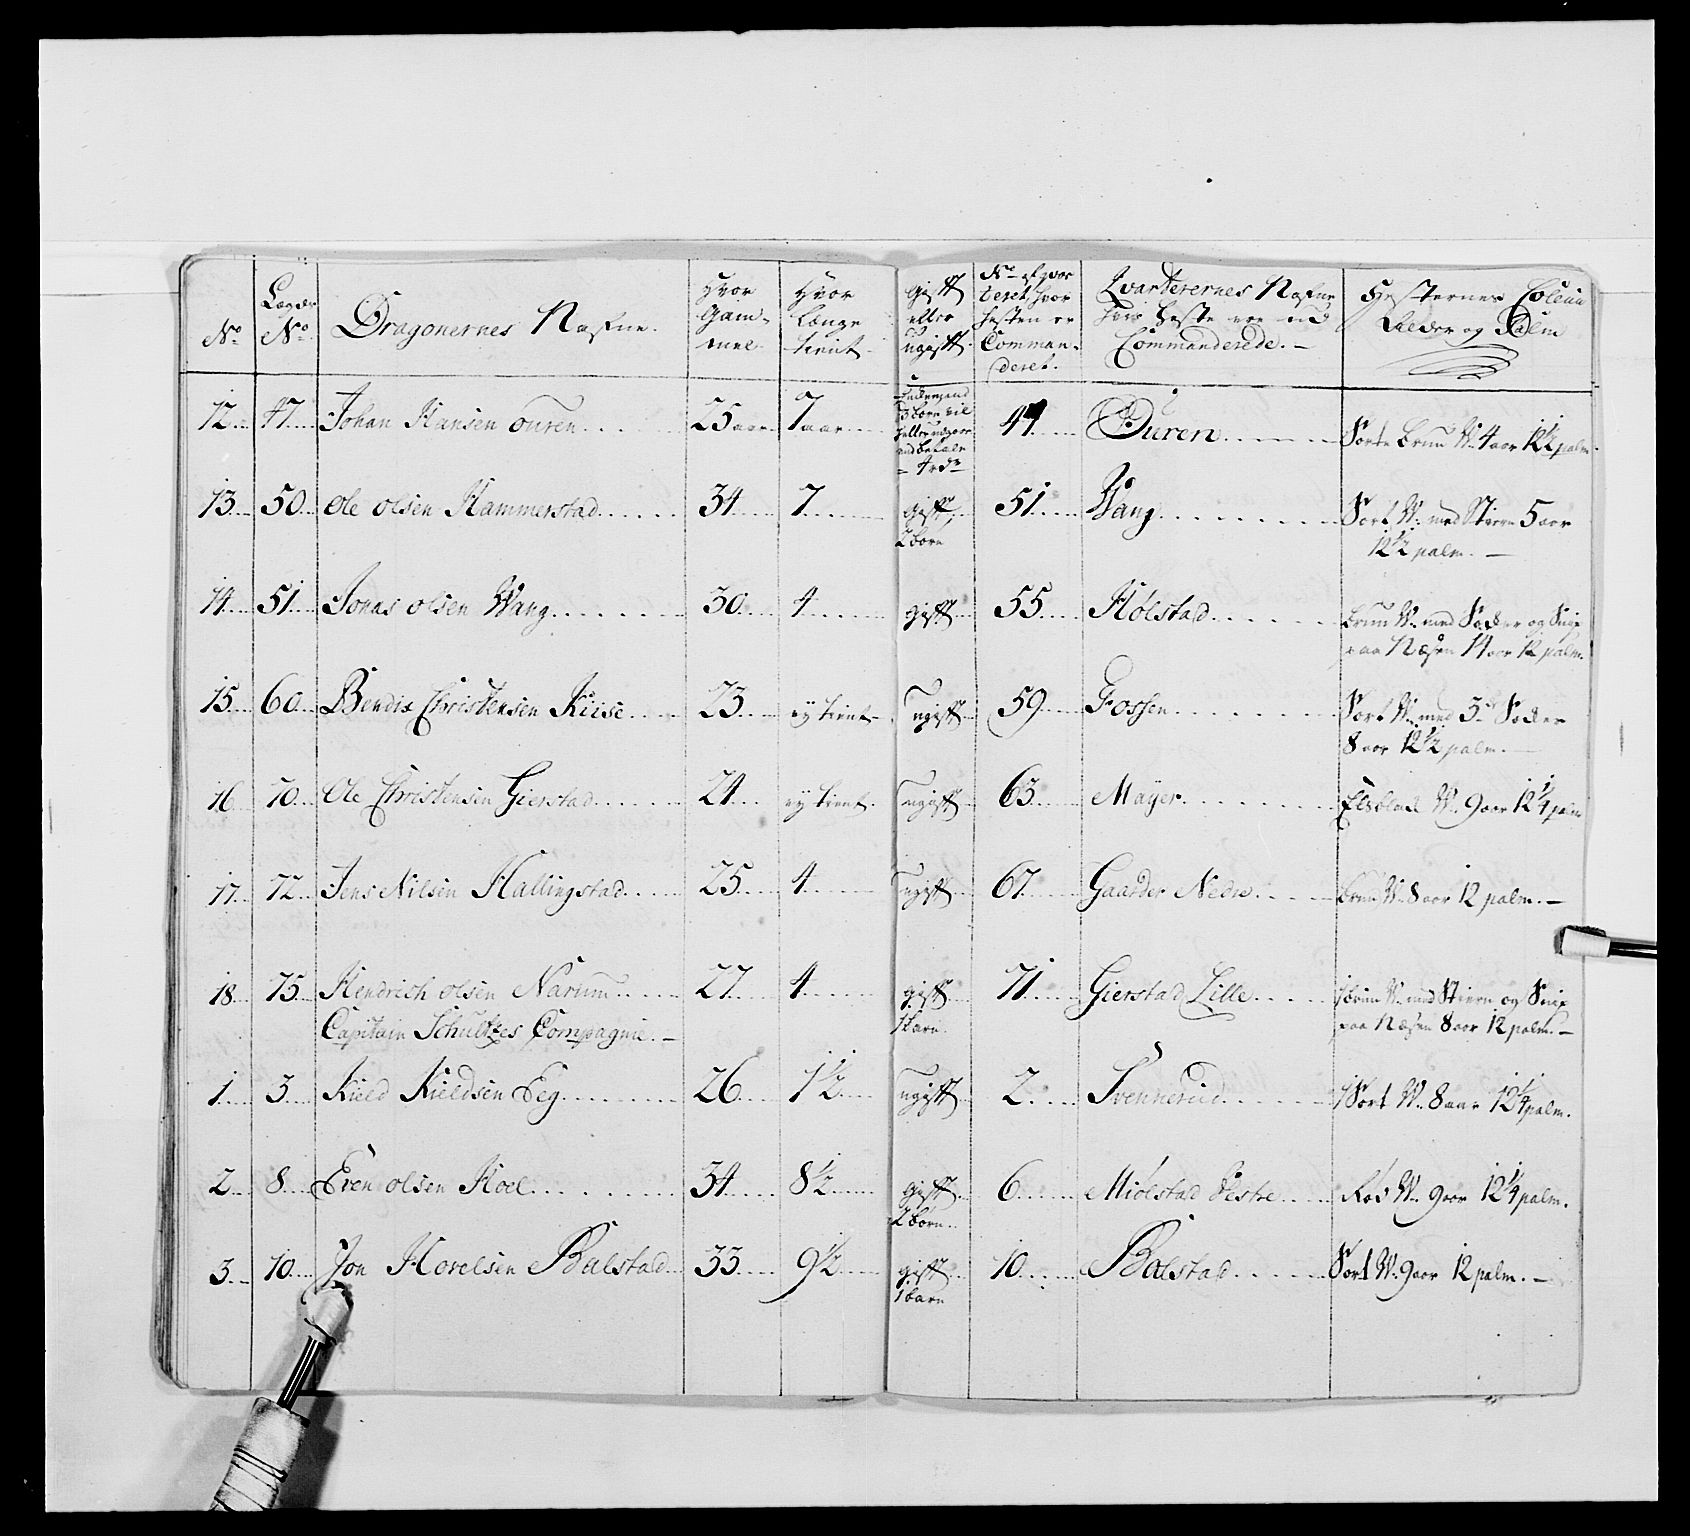 No
Lægder No
Dragonernes Nafne.
Hvor Gammel
Hvor Længe tient
gift eller ugift
No af Qvarteret, hvor hesten er Commanderet.
Qvarterernes Nafne hvis Heste ere ud Commanderede. –
Hesternes Coleur Alder og Palm
12 47 Johan Hansen Ouren 25 aar 7 aar 44 Ouren Sorte brun W. 4 aar 12 1/2 palm.
3 børn vil
13 50 Ole Olsen Hammerstad 34 7 gift, 51 Vang Sort W. med Stiern 5 aar
2 børn 12 1/2 palm. –
14 51 Jonas Olsen Wang 30 4 gift 55 Hølstad brun W. med Socker og Snip
paa Næsen 14 aar 12 palm.
15 60 Bendix Christensen Kiise 23 ey tient ugift 59 Fossen Sort W. med 3de Socker
8 aar 12 1/2 palm. –
16 70 Ole Christensen Gierstad 24 ey tient ugift 63 Mayer W. 9 aar 12 1/4 palm
17 72 Jens Nilsen Hallingstad 25 4 ugift 67 Gaarder Nedre brun W. 8 aar 12 palm. –
18 75 Hendrich Olsen Narum 27 4 gift 71 Gierstad Lille brun W. med Stiern og Snip
1 barn paa Næsen 8 aar 12 palm. –
Capitain Schultzes Compagnie. –
1 3 Kield Kieldsen Eeg 26 1 1/2 ugift 2 Svennerud Sort W. 8 aar 12 1/4 palm.
2 8 Even Olsen Hoel 34 8 1/2 gift 6 Miølstad Vestre Rød W. 9 aar 12 1/4 palm.
2 børn
3 10 Jon Hovelsen Balstad 33 9 1/2 gift 10 Balstad Sort W. 9 aar 12 palm. –
1 barn